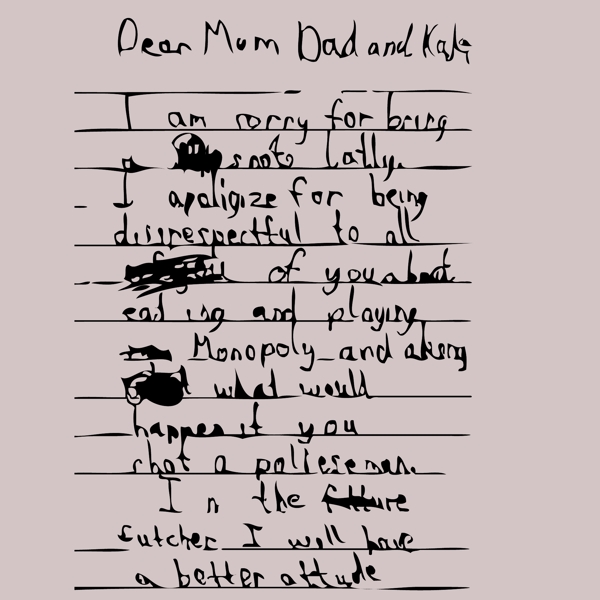 Dear Mum Dad and Kate
I am sorry for bring
a snot latly.
I apoligize for being
disrespectful to all
of you about
eating and playing
Monopoly and aking
what would
happen if you
shot a policseman.
In the
futcher I will have
a better attude